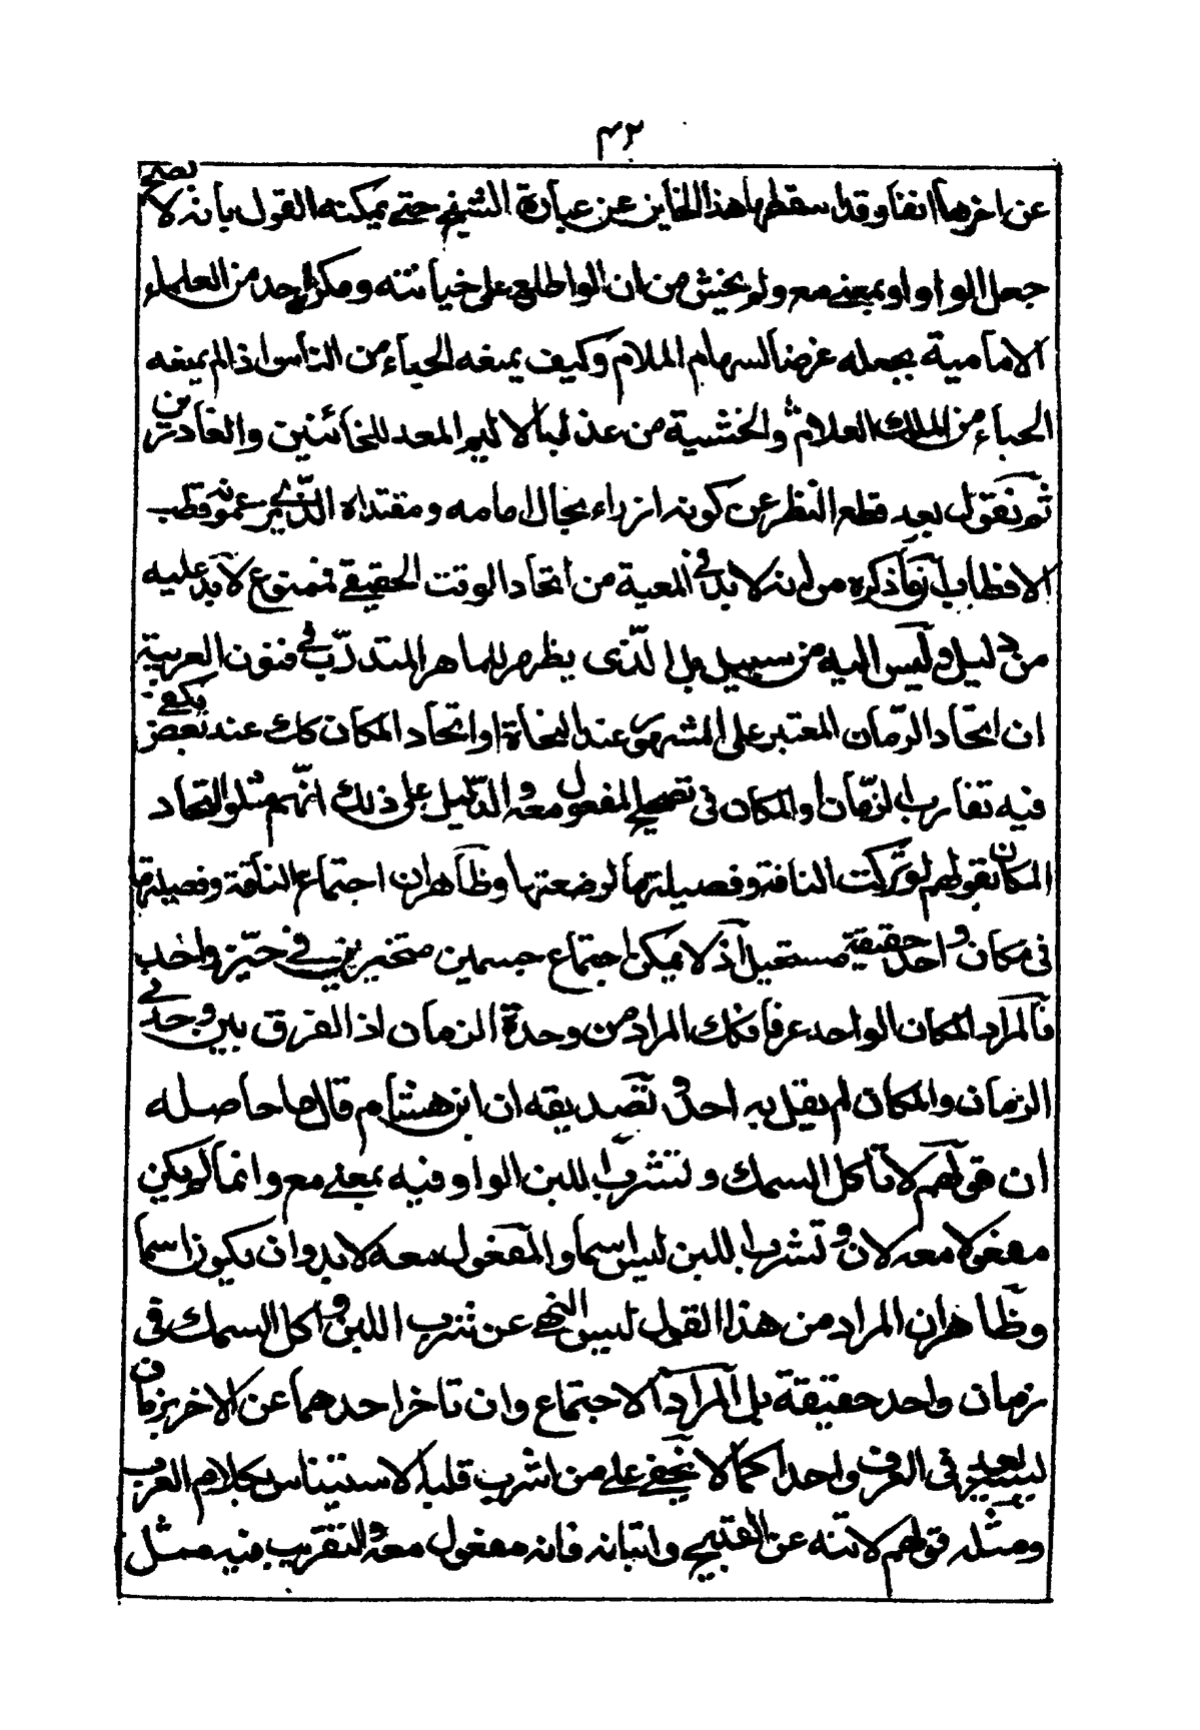 ٤٢
عن اخرها انفا وقد اسقطها هذا الخاين عن عبارة الشيخ حتى يمكنه القول بانه لا يصح
جعل الواو او بمعنى مع ولم يخش من ان لو اطلع على خيانته ومكره احد من العلماء
الامامية يجعله غرضا لسهام الملام وكيف يمنعه الحياء من الناس اذ الم يمنعه
الحياء من الملك العلام والخشية من عذابه الاليم المعد للخائنين والغادرين
ثم نقول بعد قطع النظر عن كونه ازراء بحال امامه ومقتداه الذي يزعمونه قطب
الاقطاب ان ما ذكره من انه لا بد فى المعية من اتحاد الوقت الحقيقى فممنوع لا بد عليه
من دليل وليس اليه من سبيل بل الذى يظهر للماهر المتدرب فى فنون العربية
ان اتحاد الزمان المعتبر على المشهور عند النحاة او اتحاد المكان كك عند بعض يكفى
فيه تقارب الزمان او المكان فى تصحيح المفعول معه والدليل على ذلك انهم مثلوا لاتحاد
المكان بقولهم لو تركت الناقة وفصيلتها لرضعتها وظاهر ان اجتماع الناقة وفصيلتها
فى مكان واحد حقيقة مستحيل اذ لا يمكن اجتماع جسمين متحيزين فى حيز واحد
فالمراد المكان الواحد عرفا فكك المراد من وحدة الزمان اذ الفرق بين وحدتى
الزمان والمكان لم يقل به احد وتصديقه ان ابن هشام قال ما حاصله
ان قولهم لا تاكل السمك وتشرب اللبن الواو فيه بمعنى مع وانما لم يكن
مفعولا معه لان وتشرب اللبن ليس اسما والمفعول معه لا بد وان يكون اسما
وظاهر ان المراد من هذا القول ليس النهى عن شرب اللبن واكل السمك فى
زمان واحد حقيقة بل المراد الاجتماع وان تاخر احدهما عن الاخر بزمان
يسير يعد فى العرف واحدا كما لا يخفى على من اشرب قلبه الاستيناس بكلام العرب
ومثله قولهم لا تنه عن القبيح واتيانه فانه مفعول معه والتقريب فيه مثل